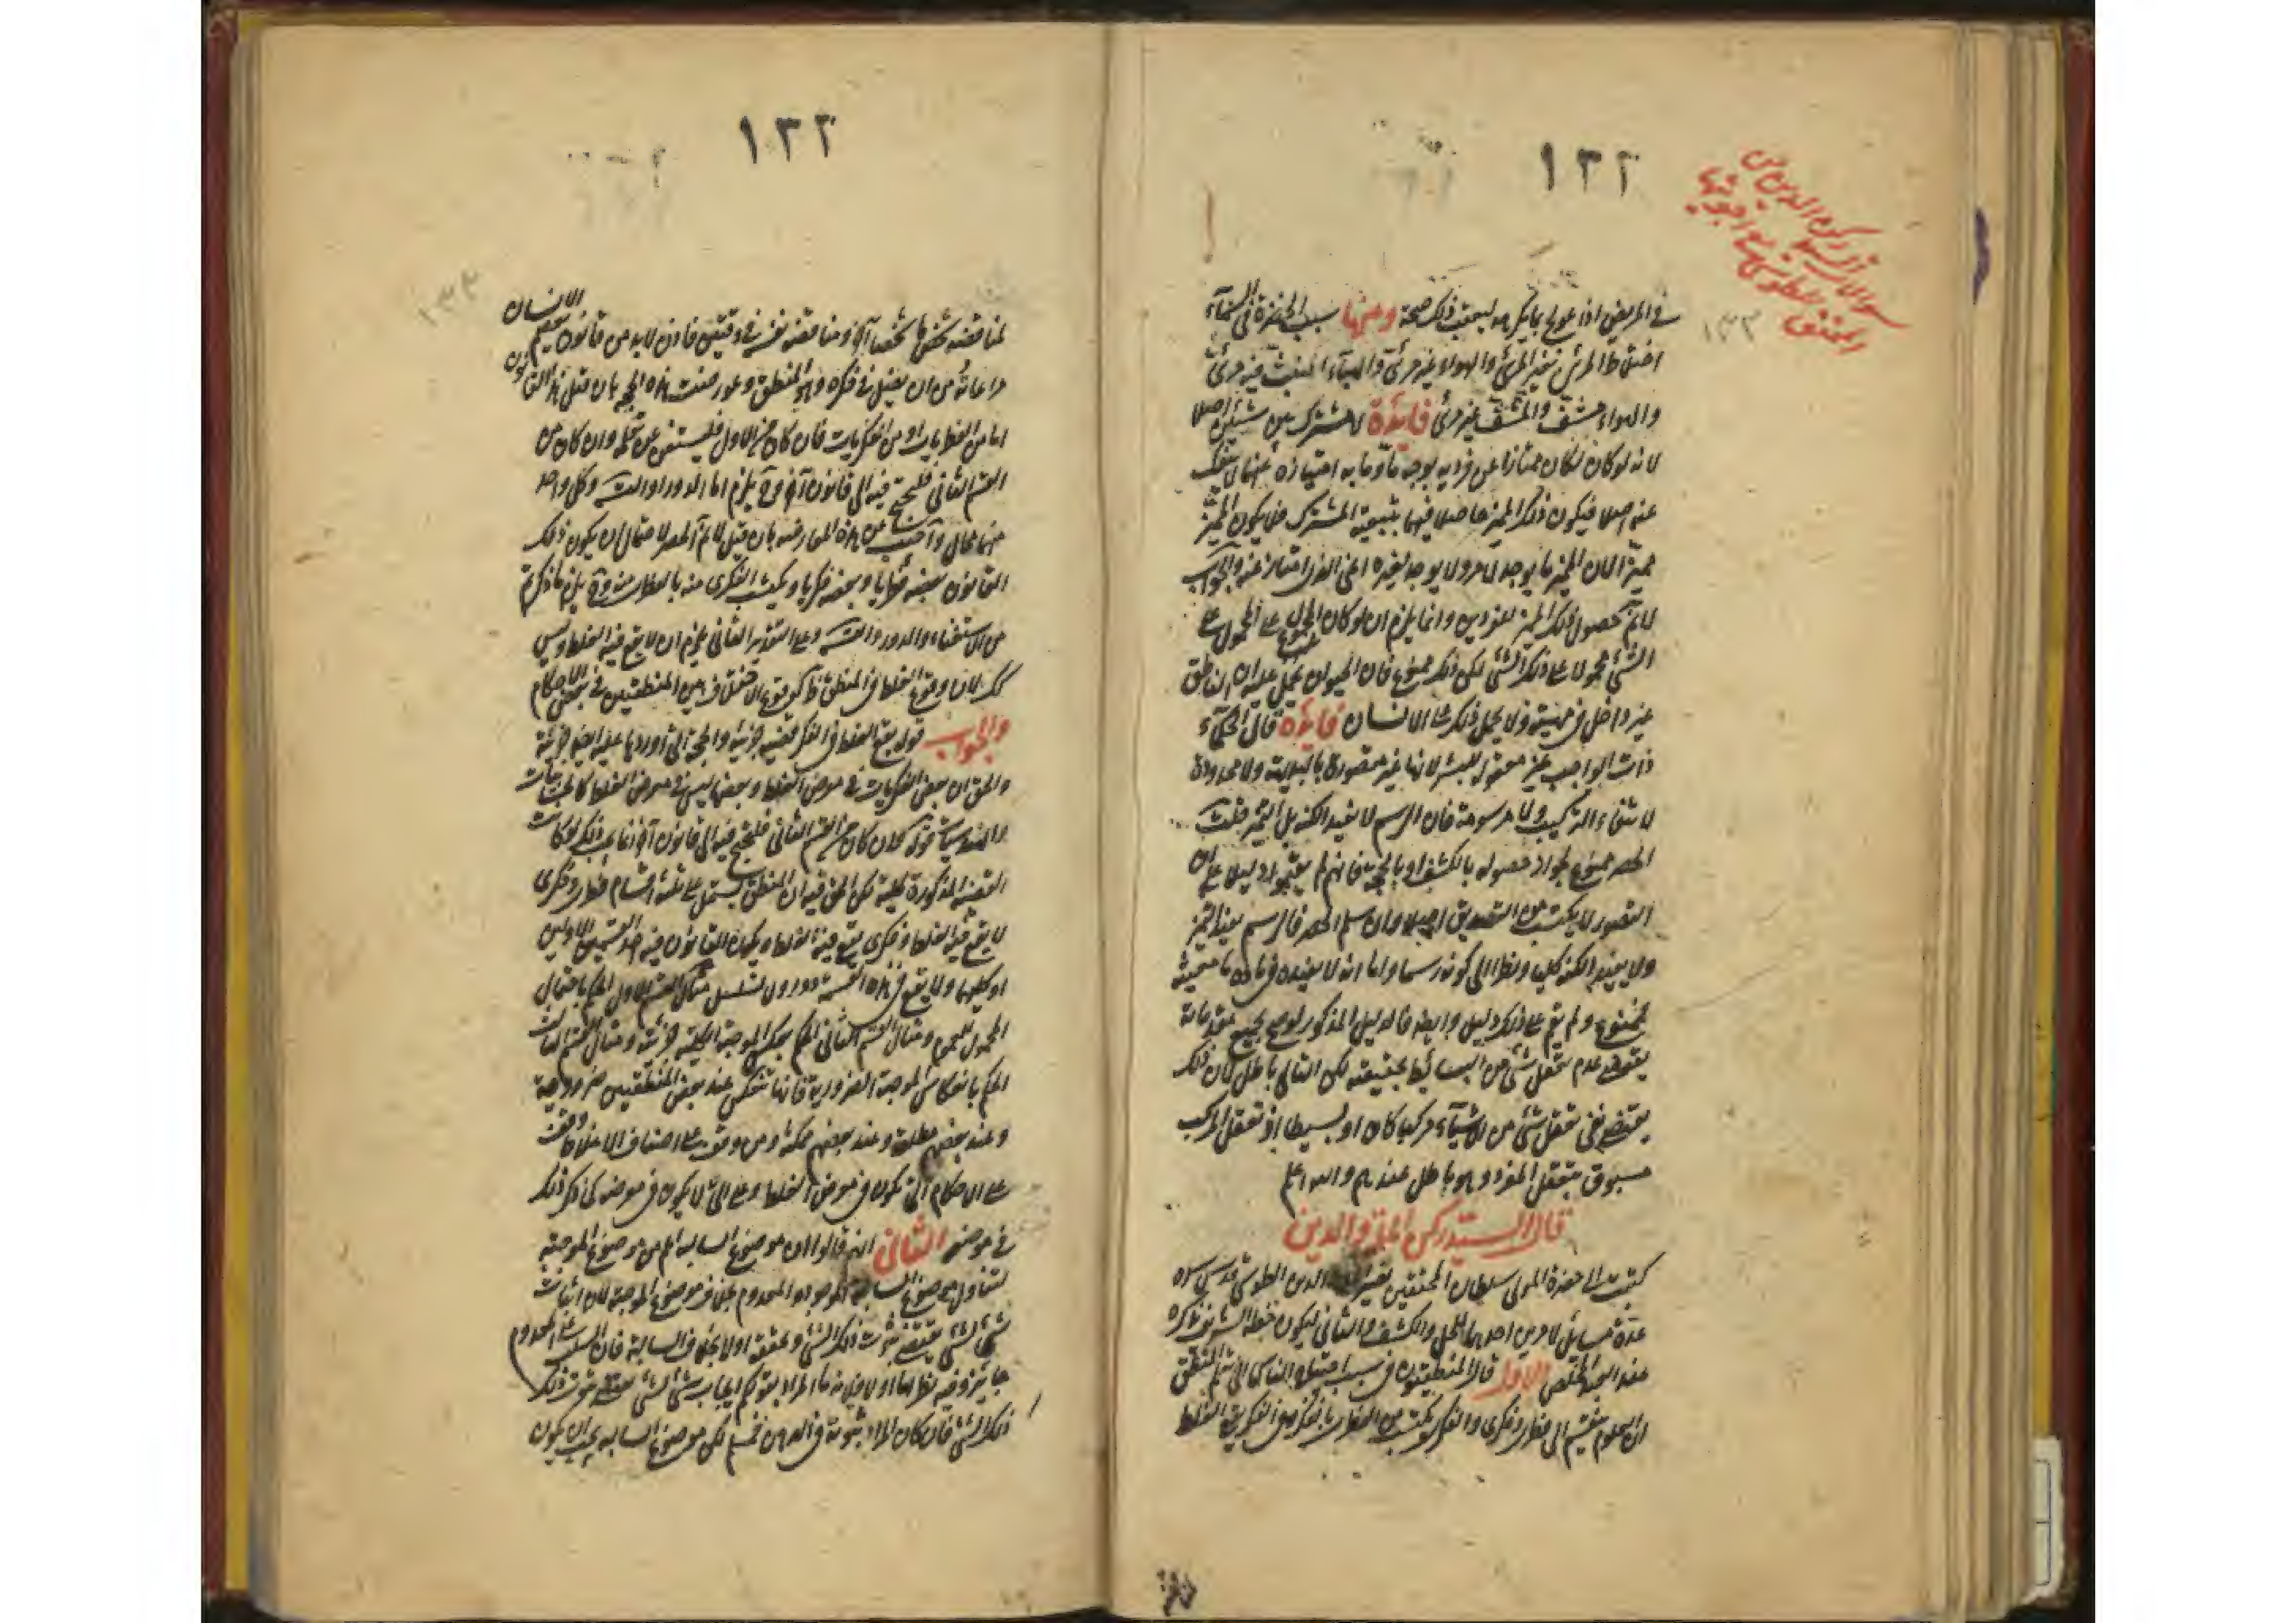 ١٣٢
سؤالات السيد ركن الدين من
المحقق الطوسي مع اجوبتها
١٣٢
في المريض اذا عولج بما يكره ليعقب ذلك صحة ومنها سبب الخضرة في السماء
اختلاط المرئي بغير المرئي والهواء غير مرئي والهباء المنبث فيه مرئي
والهواء مشف والمشف غير مرئي فايدة لا مشترك بين شيئين اصلا
لانه لو كان لكان ممتازا عن فرديه بوجه ما وما به امتيازه عنهما لا ينفك
عنه اصلا فيكون ذلك المميز حاصلا فيهما بتبعية المشترك فلا يكون المميز
مميزا لان المميز ما يوجد لامر ولا يوجد لغيره اعني الذي امتاز عنه والجواب
لا نم حصول ذلك المميز للفردين وانما يلزم ان لو كان المحمول على المحمول على
الشئ محمولا على ذلك الشئ لكن ذلك ممنوع فان الحيوان يحمل عليه ان الناطق
غير داخل في مهيته ولا يحمل ذلك على الانسان فايدة قال الحكماء
ذات الواجب غير معقولة للبشر لانها غير متصورة بالبديهة ولا محدودة
لانتفاء التركيب ولا مرسومة فان الرسم لا يفيد الكنه بل التميز قلت
الحصر ممنوع لجواز حصوله بالكشف او بالحجة فانهم لم يقيموا دليلا على ان
التصور لا يكتسب من التصديق اصلا وان سلم الحصر فالرسم يفيد التميز
ولا يفيد الكنه كليا ونظرا الى كونه رسما واما انه لا يفيده في مادة ما معينة
فممنوع ولم يقم على ذلك دليل وايضا فالدليل المذكور لو صح بجميع مقدماته
يقتضي عدم تعقل شئ من البسائط بحقيقته لكن التالي باطل لان ذلك
يقتضي نفي تعقل شئ من الاشياء مركبا كان او بسيطا اذ تعقل المركب
مسبوق بتعقل المفرد وهو باطل عندهم والله اعلم
قال السيد ركن الملة والدين
كتبت الى حضرة المولى سلطان المحققين نصير الدين الطوسي قدس سره
عدة مسائل لامرين احدهما للحل والكشف والثاني ليكون خطه الشريف تذكرة
عند العبد المخلص الاول قال المنطقيون في سبب احتياج الناس الى تعلم المنطق
ان العلوم ينقسم الى فطري وفكري والفكري يكتسب من الفطري بالفكر وفي الفكر يقع الغلط
١٣٢
١٣٣
لمناقضة شخص ما شخصا آخر ومناقضة نفسه في وقتين فاذن لا بد من قانون يعصم الانسان
مراعاته من ان يضل في فكره وهو المنطق وعورضت هذه الحجة بان قيل هذا القانون
اما من الفطريات او من الفكريات فان كان من الاول فليستغن عن تعلمه وان كان من
القسم الثاني فليحتج فيه الى قانون آخر وح يلزم اما الدور او التس وكل واحد
منهما محال واجيب عن هذه المعارضة بان قيل لا نم الحصر لاحتمال ان يكون ذلك
القانون بعضه فطريا وبعضه فكريا ويكتسب الفكري منه بالفطري منه وح يلزم ما ذكرتم
من الاستغناء والدور والتس وعلى التقدير الثاني يلزم ان لا يقع فيه الغلط وليس
كك لان وقوع الغلط في المنطق ظ كوقوع الاختلاف بين المنطقيين في بعض الاحكام
والجواب قوله يقع الغلط في الفكر قضية جزئية والحجة التي اوردها عليه ايضا جزئية
والحق ان بعض الفكريات في معرض الغلط وبعضها ليس في معرض الغلط كالحسابيات
والهندسيات قوله لان كان من القسم الثاني فليحتج فيه الى قانون آخر انما يجب ذلك لو كانت
القضية المذكورة كلية لكن الحق فيه ان المنطق يشتمل على ثلثة اقسام فطري وفكري
لا يقع فيه الغلط وفكري يقع فيه الغلط ويكون القانون فيه احد القسمين الاولين
او كليهما ولا يقع في هذه القسمة دور ولا تسلسل مثال القسم الاول الحكم باحتمال
المحمول للعموم ومثال القسم الثاني الحكم بعكس الموجبة الكلية جزئية ومثال القسم الثالث
الحكم بانعكاس الموجبة الضرورية فانها تنعكس عند بعض المنطقيين ضرورية
وعند بعضهم مطلقة وعند بعضهم ممكنة ومن وقف على اصناف الاغلاط وقف
على الاحكام التي تكون في معرض الغلط وعلى التي لا يكون في معرضه كما ذكر ذلك
في موضعه الثاني انهم قالوا ان موضوع السالبة اعم من موضوع الموجبة
لتناول موضوع السالبة الموجود والمعدوم بخلاف موضوع الموجبة لان اثبات
شئ لشئ يقتضي ثبوت ذلك الشئ وتحققه اولا بخلاف السالبة فان السلب عن المعدوم
جايز وفيه نظر اما اولا فلانه ما المراد بقولكم ايجاب شئ لشئ يقتضي ثبوت ذلك
ذلك الشئ فان كان المراد ثبوته في الذهن فمسلم لكن موضوع السالبة يجب ان يكون